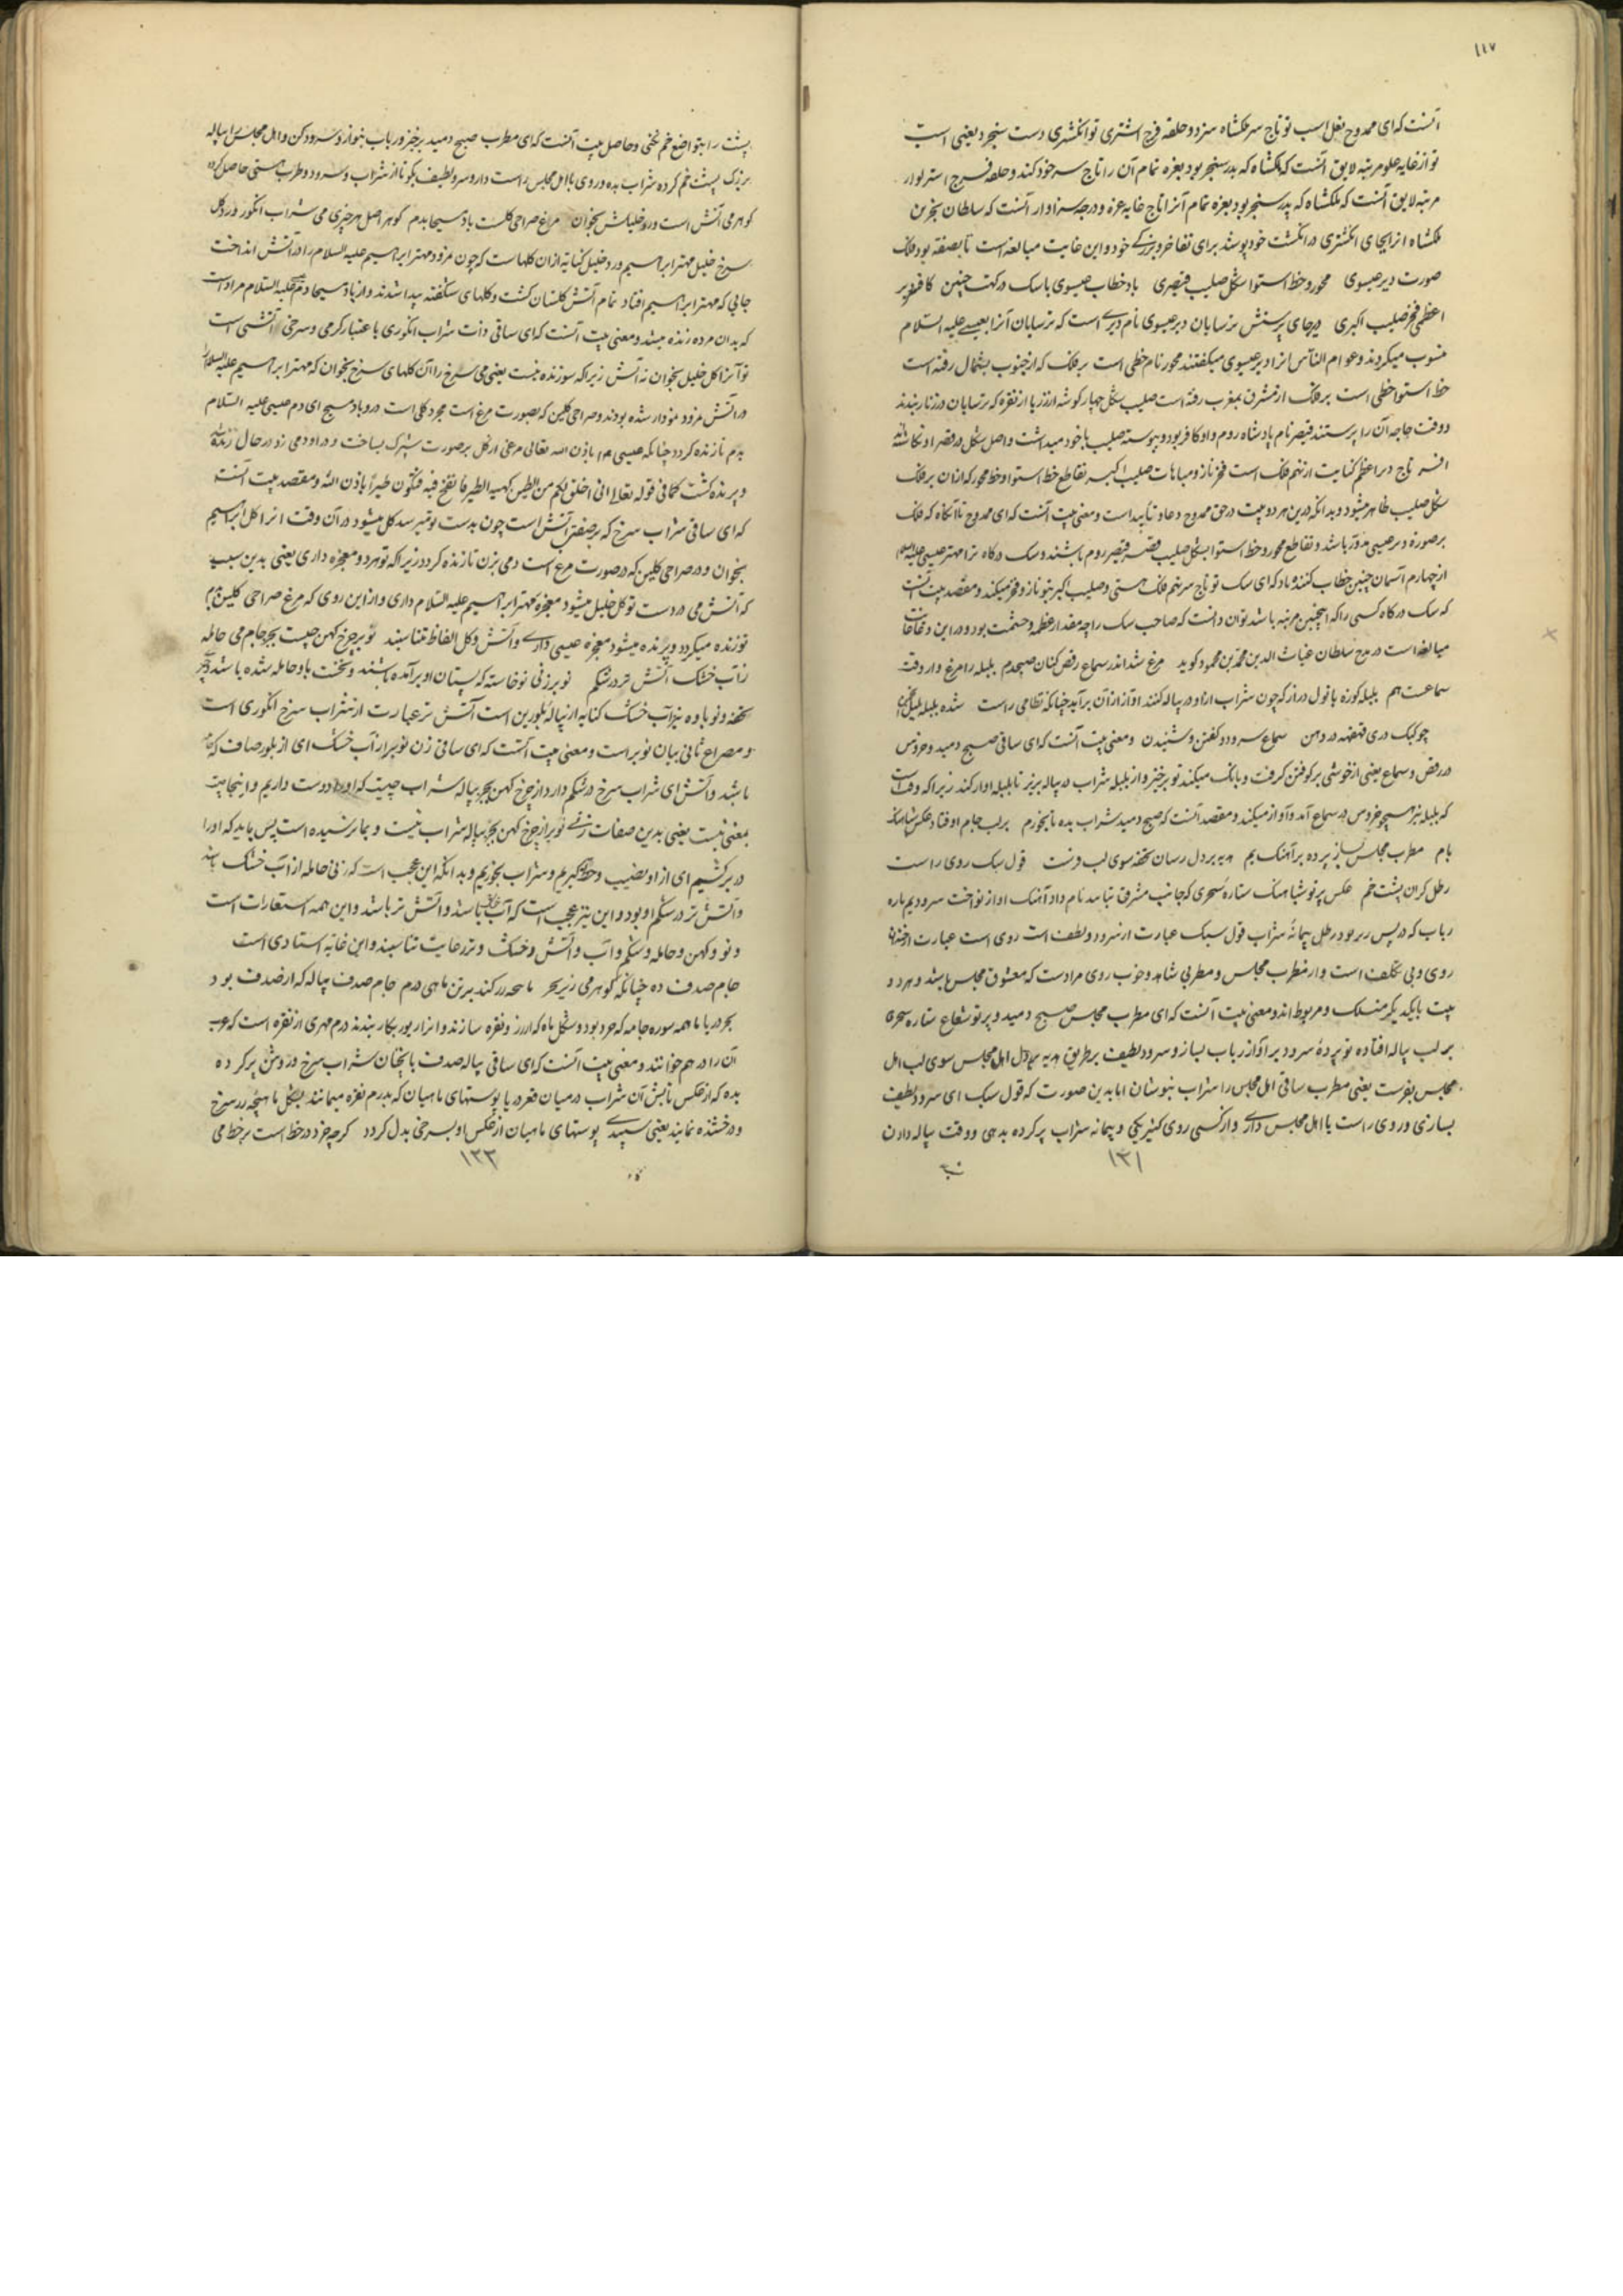 ١١٧
آنست که ای ممدوح نعل اسب تو تاج سر ملکشاه سزد و حلقه فرج استری تو انگشتری دست سنجر د یعنی اسب
تو از غایه علو مرتبه لایق آنست که ملکشاه که پدر سنجر بود بغزه تمام آن را تاج سر خود کند و حلقه فرج استر تو از
مرتبه لایق آنست که ملکشاه که پدر سنجر بود بغزه تمام آنرا تاج غایه عزه و درجه سزاوار آنست که سلطان سنجر بن
ملکشاه انرا بجای انگشتری در انگشت خود پوشد برای تفاخر و بزرگی خود و این غایت مبالغه است تا بصفه بود فلک
صورت دیر عیسوی محور و خط استوا شکل صلیب قیصری باد خطاب عیسوی با سک درگهت چنین کافسر
اعظمی فخر صلیب اکبری دیر جای پرستش ترسایان دیر عیسوی نام دیری است که ترسایان آنرا بعیسی علیه السلام
منسوب میکردند و عوام الناس انرا دیر عیسوی میکفتند محور نام خطی است بر فلک که از جنوب بشمال رفته است
خط استوا خطی است بر فلک از مشرق بمغرب رفته است صلیب شکل چهار کوشه از زر یا از نقره که ترسایان در زنار بندند
و وقت حاجه آن را پرستند قیصر نام پادشاه روم و او کافر بود و پیوسته صلیب با خود میداشت و اصل شکل در قصر او نکاشته
افسر تاج دیر اعظم کنایت از نهم فلک است فخر ناز و مباهات صلیب اکبر تقاطع خط استوا و خط محور که ازان بر فلک
شکل صلیب ظاهر میشود و بدانکه درین هر دو بیت در حق ممدوح دعاء تأبید است و معنی بیت آنست که ای ممدوح تا آنکاه که فلک
بر صورة دیر عیسی مدور باشد و تقاطع محور و خط استوا بشکل صلیب قصر قیصر روم باشند و سک درکاه ترا مهتر عیسی علیه السلام
از چهارم آسمان چنین خطاب کنند و باد که ای سک تو تاج سر نهم فلک هستی و صلیب اکبر بتو ناز و فخر میکند و مقصد بیت آنست
که سک درکاه کسی را که اینچنین مرتبه باشد توان دانست که صاحب سک را چه مقدار عظمه و حشمت بود و در این دعا غایت
مبالغه است در مدح سلطان غیاث الدین محمد بن محمود کوید مرغ شد اندر سماع رقص کنان صبحدم بلبله را مرغ وار وقت
سماعست هم بلبله کوزه با نول دراز که چون شراب ازو در پیاله کنند آوازی از آن برآید چنانکه نظامی راست شده بلبله بلبل انجمن
چو کبک دری قهقهه در دهن سماع سرود کفتن و شنیدن و معنی بیت آنست که ای ساقی صبح دمید و خروس
در رقص و سماع یعنی از خوشی برکوفتن کرفت و بانک میکند تو برخیز و از بلبله شراب در پیاله بریز تا بلبله آواز کند زیرا که وقت است
که بلبله نیز همچو خروس در سماع آمد و آواز میکند و مقصد آنست که صبح دمید شراب بده تا بخوریم بر لب جام اوفتاد عکس شباهنگ
بام مطرب مجلس بساز پرده برآهنک بم هدیه بر دل رسان تحفه سوی لب فرست قول سبک روی راست
رطل کران پشت خم عکس پرتو شباهنگ ستاره سحری که جانب مشرق بتابد نام داد آهنک آواز نواخت سرود بم تاره
رباب که در پس زیر بود رطل پیمانه شراب قول سبک عبارت از سرود و لطف است روی است عبارت از خنده
روی و بی تکلف است و از مطرب مجلس و مطربی شاهد و خوب روی مراد است که معشوق مجلس باشد و هر دو
بیت بایکدیکر منسلک و مربوط اند و معنی بیت آنست که ای مطرب مجلس صبح دمید و پرتو شعاع ستاره سحری
بر لب پیاله افتاده تو پرده سرود بر آواز رباب بساز و سرود لطیف بر طریق هدیه بر دل اهل مجلس سوی لب اهل
مجلس بفرست یعنی مطرب ساقی اهل مجلس را شراب بنوشان اما بدین صورت که قول سبک ای سرود لطیف
بسازی و روی راست با اهل مجلس داری و از کسی روی کنیریکی و پیمانه شراب پر کرده بدهی و وقت پیاله دادن
١٣١
پشت را بتواضع خم کنی و حاصل بیت آنست که ای مطرب صبح دمید برخیز و رباب بنواز و سرود کن و اهل مجلس را پیاله
بزرک پشت خم کرده شراب بده و روی با اهل مجلس راست دار و سرود لطیف بکو تا از شراب و سرود و طرب هستی حاصل کرده
کوهر می آتش است ورد خلیلش بخوان مرغ صراحی کلست باد مسیحا بدم کوهر اصل هر چیزی می شراب انکور ورد کل
سرخ خلیل مهتر ابراهیم ورد خلیل کنایه ازان کلهاست که چون نمرود مهتر ابراهیم علیه السلام را در آتش انداخت
جایی که مهتر ابراهیم افتاد تمام آتش کلستان کشت و کلهای شکفته پیدا شدند و از باد مسیحا دم عیسی علیه السلام مراد است
که بدان مرده زنده میشد و معنی بیت آنست که ای ساقی ذات شراب انکوری با عتبار کرمی و سرخی آتشی است
تو آنرا کل خلیل بخوان نه آتش زیرا که سوزنده نیست یعنی می سرخ را آن کلهای سرخ بخوان که مهتر ابراهیم علیه السلام را
در آتش نمرود نمودار شده بودند و صراحی کلین که بصورت مرغ است مجرد کلی است در و باد مسیح ای دم عیسی علیه السلام
بدم تا زنده کردد چنانکه عیسی ء م باذن الله تعالی مرغی از کل بر صورت شپرک بساخت و در او دمی زد در حال زنده شد
و پرنده کشت کما فی قوله تعالی انی اخلق لکم من الطین کهیئة الطیر فانفخ فیه فیکون طیرا باذن الله و مقصد بیت آنست
که ای ساقی شراب سرخ که بر صفت آتش است چون بدست تو میرسد کل میشود در آن وقت انرا کل ابراهیم
بخوان و در صراحی کلین که در صورت مرغ است دمی بزن تا زنده کردد زیرا که تو هر دو معجزه داری یعنی بدین سبب
که آتش می در دست تو کل خلیل میشود معجزه مهتر ابراهیم علیه السلام داری و از این روی که مرغ صراحی کلین بدم
تو زنده میکردد و پرنده میشود معجزه عیسی داری و آتش و کل الفاظ متناسبند نوبر چرخ کهن چیست بجز جام می حامله
ز آب خشک آتش تر در شکم نوبر زنی نوخاسته که پستان او برآمده باشند و نخست باو حامله شده باشد و نیز
تحفه و نوباوه نیز آب خشک کنایه از پیاله بلورین است آتش تر عبارت از شراب سرخ انکوری است
و مصراع ثانی بیان نوبر است و معنی بیت آنست که ای ساقی زن نوبر از آب خشک ای از بلور صاف که حامله
باشد و آتش ای شراب سرخ در شکم دارد از چرخ کهن بجز پیاله شراب چیست که او را دوست داریم و اینجا چیست
بمعنی نیست یعنی بدین صفات زنی نوبر از چرخ کهن بجز پیاله شراب نیست و بما نرسیده است پس باید که او را
در برکشیم ای از او نصیب و حظ کیریم و شراب بخوریم و بدانکه این عجب است که زنی حامله از آب خشک باشد
و آتش تر در شکم او بود و این نیز عجب است که آب خشک باشد و آتش تر باشد و این همه استعارات است
و نو و کهن و حامله و شکم و آب و آتش و خشک و تر رعایت تناسبند و این غایه استادی است
جام صدف ده چنانکه کوهر می زیر بحر ماهچه زر کند بر تن ماهی درم جام صدف پیاله که از صدف بود
آن را درهم خوانند و معنی بیت آنست که ای ساقی پیاله صدف باینجنان شراب سرخ و روشن پر کرده
بده که از عکس تابش آن شراب در میان قعر دریا پوستهای ماهیان که بدرم نقره میمانند بشکل ماهیچه زر سرخ
و درخشنده نمایند یعنی سپیدی پوستهای ماهیان از عکس او بسرخی بدل کردد کرچه خرد در خط است بر خط می
١٣٣